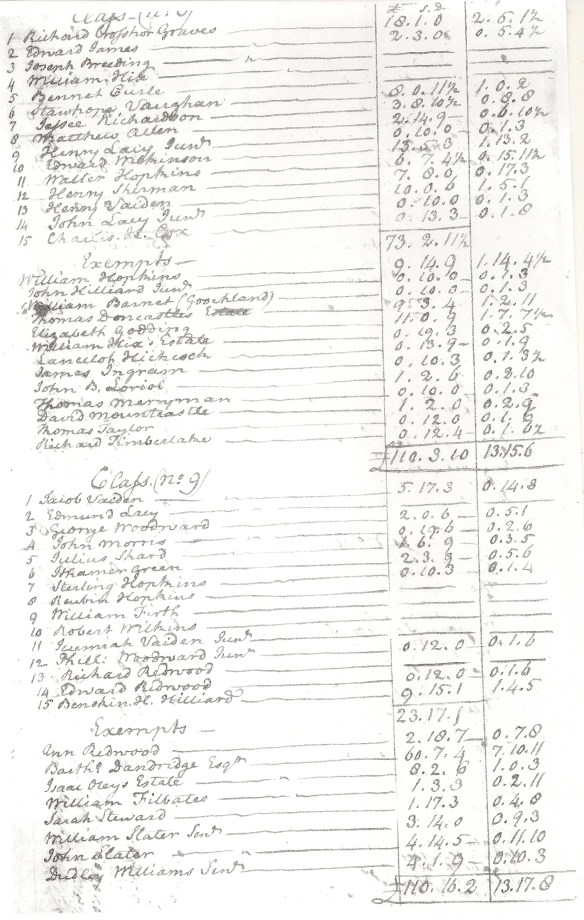 Class (No. 8) £ s. d
1 Richard Crosshor Graves 18.1.0 2.5.1½
2 Edward James 2.3.0 0.5.4½
3 Joseph Breeding "
4 William Hix
5 Bennet Curle 8.0.11½ 1.0.2
6 Stanhope Vaughan 3.8.10½ 0.8.8
7 Jessee Richardson 2.14.9 0.6.10½
8 Matthew Allen 0.10.0 0.1.3
9 Henry Lacy Junr 13.5.3 1.13.2
10 Edward Wilkinson 6.7.4½ 0.15.11½
11 Walter Hopkins 7.8.0 0.17.3
12 Henry Sherman 10.0.6 1.5.1
13 Henry Vaiden 0.10.0 0.1.3
14 John Lacy Junr 0.13.3 0.1.8
15 Charles Cox
73.2.11½
Exempts —
William Hopkins 9.14.9 1.14.4½
John Hilliard Junr 0.10.0 0.1.3
William Barnet (Goochland) 0.10.0 0.1.3
Thomas Doncastles Estate 9.3.4 1.2.11
Elizabeth Godding 11.0.9 1.7.7½
William Hix's Estate 0.19.3 0.2.5
Lancelot Hichcock 0.13.9 0.1.9
James Ingram 0.10.3 0.1.3½
John B. Loriol 1.2.6 0.2.10
Thomas Merryman 0.10.0 0.1.3
David Mountcastle 1.2.0 0.2.9
Thomas Taylor 0.12.0 0.1.6
Richard Timberlake 0.12.4
£110.3.10 13.15.6
Class. (No 9)
1 Jacob Vaiden 5.17.3 0.14.8
2 Edmund Lacy 2.0.6 0.5.1
3 George Woodward 0.2.6
4 John Morris 1.6.9 0.3.5
5 Julius Shard 2.3.8 0.5.6
6 Ithamer Green 0.10.3 0.1.4
7 Sterling Hopkins
8 Reubin Hopkins
9 William Firth
10 Robert Wilkins
11 Jeremiah Vaiden Junr 0.12.0 0.1.6
12 Phill: Woodward Junr
13 Richard Redwood 0.12.0 0.1.6
14 Edward Redwood 9.15.1 1.4.5
15 Benskin H. Hilliard
23.17.1
Exempts —
Ann Redwood 2.18.7 0.7.8
Barthw Dandridge Esqr 60.7.4 7.10.11
Isaac Oteys Estate " 8.2.6 1.0.3
William Filbates 1.3.3 0.2.11
Sarah Steward 1.17.3 0.4.8
William Slater Senr 3.14.0 0.9.3
John Slater 4.14.5 0.11.10
Dudley Williams Senr 4.1.9 0.10.3
£110.16.2 13.17.8